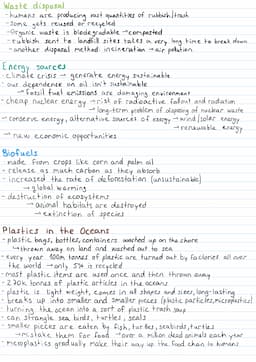 Waste disposal
- humans are producing vast quantities of rubbish/trash
- some gets reused or recycled
- Organic waste is biodegradable → composted
- rubbish sent to landfill sites takes a very long time to break down
- another disposal method: incineration → air pollution
Energy sources
- climate crisis → generate energy sustainable
- our dependence on oil isn't sustainable
→ fossil fuel emissions are damaging environment
- cheap nuclear energy → risk of radioactive fallout and radiation
→ long-term problem of disposing of nuclear waste
- conserve energy, alternative sources of energy → wind/solar energy
→ renewable energy
→ new economic opportunities
Biofuels
- made from crops like corn and palm oil
- release as much carbon as they absorb
- increased the rate of deforestation (unsustainable)
→ global warming
- destruction of ecosystems
→ animal habitats are destroyed
→ extinction of species
Plastics in the Oceans
- plastic bags, bottles, containers washed up on the shore
→ thrown away on land and washed out to sea
- every year 100m tonnes of plastic are turned out by factories all over
the world → only 5% is recycled
- most plastic items are used once and then thrown away
- 270k tonnes of plastic articles in the oceans
- plastic is light weight, comes in all shapes and sizes, long-lasting
- breaks up into smaller and smaller pieces (plastic particles, microplastics)
- turning the ocean into a sort of plastic trash soup
- can strangle sea birds, turtles, seals
- smaller pieces are eaten by fish, turtles, seabirds, turtles
→ mistake them for food → over a million dead animals each year
- microplastics gradually make their way up the food chain to humans